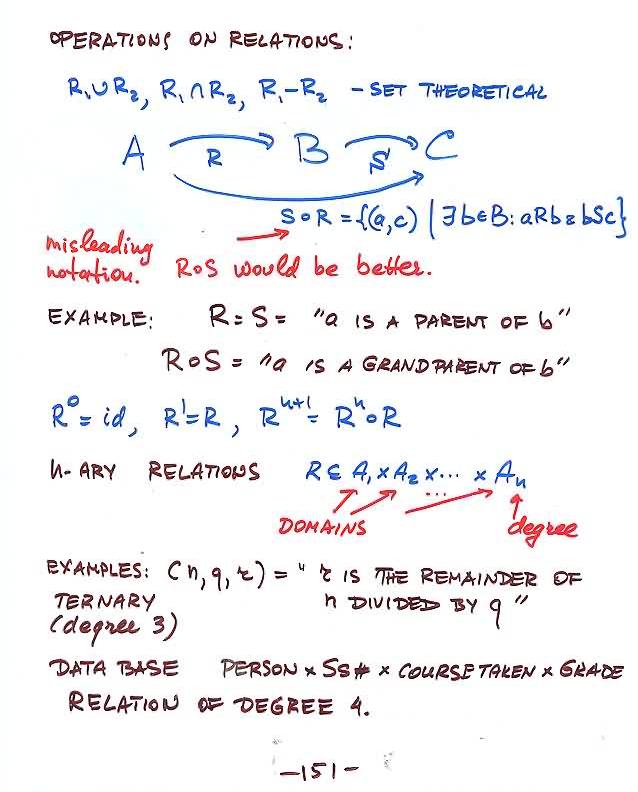 OPERATIONS ON RELATIONS:
R₁∪R₂, R₁∩R₂, R₁-R₂ - SET THEORETICAL
A R B S C
S∘R = {(a,c) | ∃b∈B: aRb & bSc}
misleading
notation. R∘S would be better.
EXAMPLE: R = S = "a IS A PARENT OF b"
R∘S = "a IS A GRANDPARENT OF b"
R⁰ = id, R¹ = R, Rⁿ⁺¹ = Rⁿ∘R
n-ARY RELATIONS R ⊆ A₁ × A₂ × ··· × Aₙ
...
DOMAINS degree
EXAMPLES: (n, q, r) = "r IS THE REMAINDER OF
TERNARY n DIVIDED BY q"
(degree 3)
DATA BASE PERSON × SS# × COURSE TAKEN × GRADE
RELATION OF DEGREE 4.
-151-